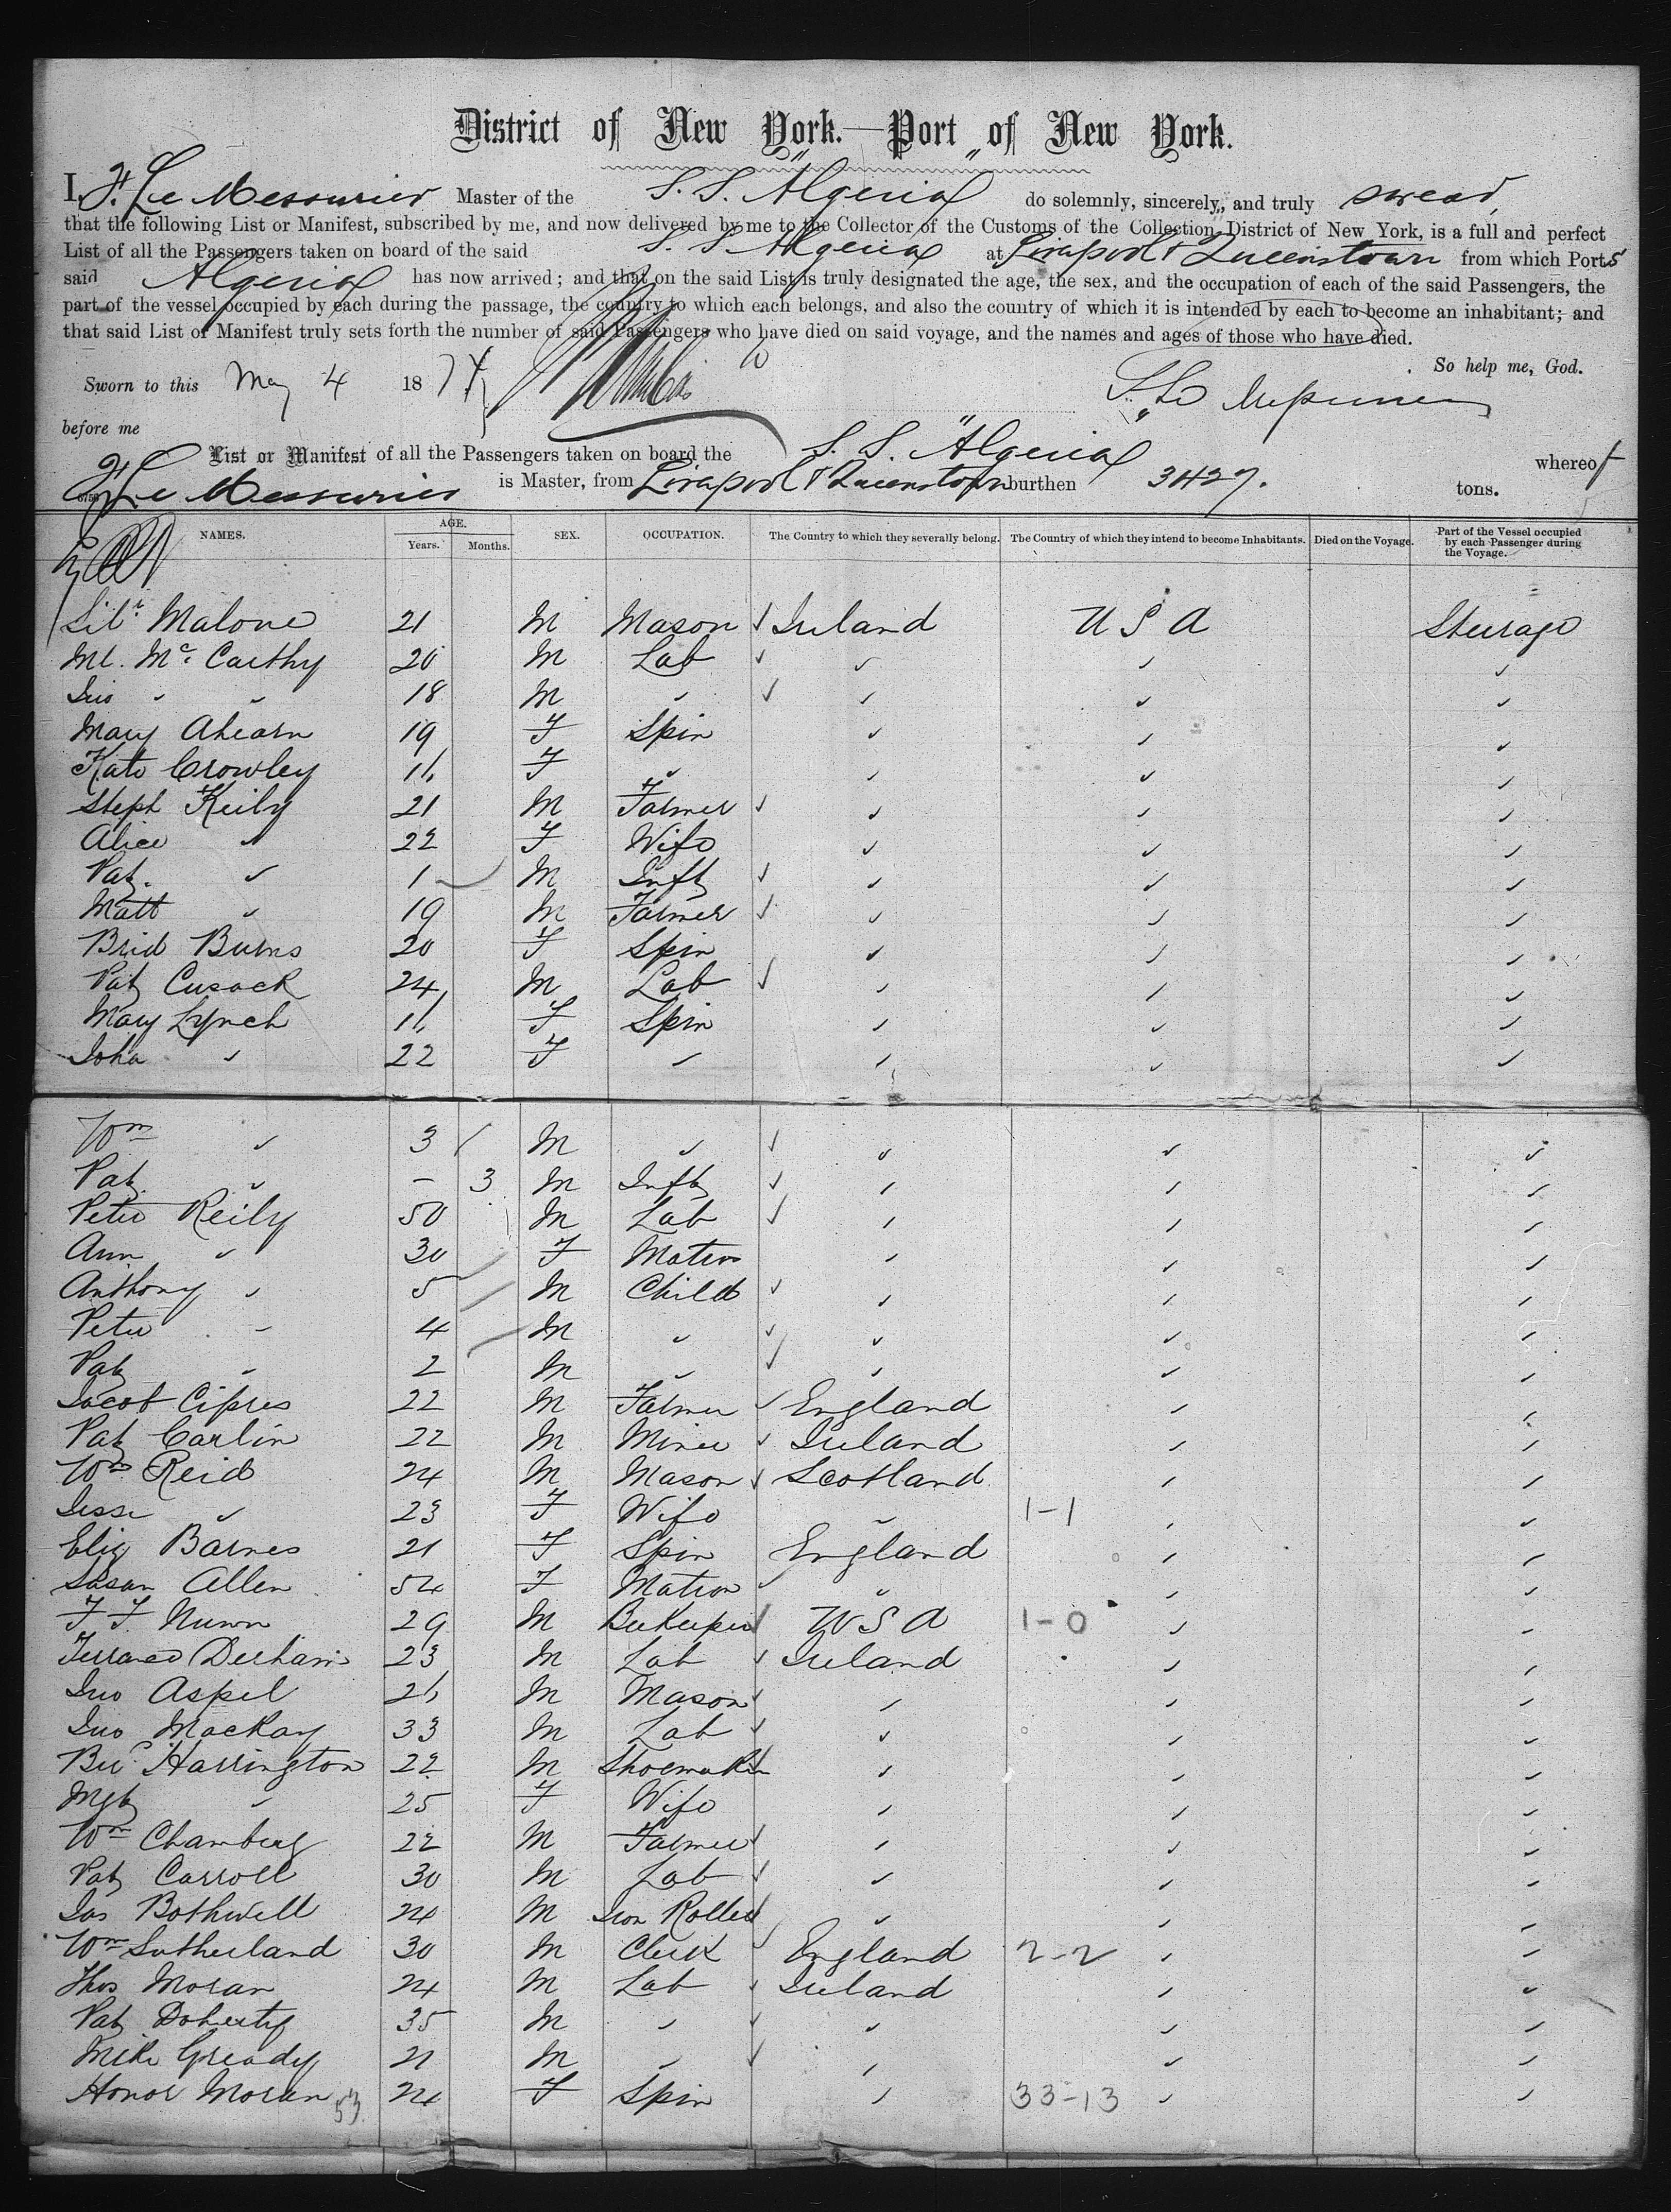 District of New York.—Port of New York.
I, F. Le Messurier Master of the S. S. "Algeria" do solemnly, sincerely, and truly swear,
that the following List or Manifest, subscribed by me, and now delivered by me to the Collector of the Customs of the Collection District of New York, is a full and perfect
List of all the Passengers taken on board of the said S. S. Algeria at Liverpool & Queenstown from which Ports
said Algeria has now arrived; and that on the said List is truly designated the age, the sex, and the occupation of each of the said Passengers, the
part of the vessel occupied by each during the passage, the country to which each belongs, and also the country of which it is intended by each to become an inhabitant; and
that said List or Manifest truly sets forth the number of said Passengers who have died on said voyage, and the names and ages of those who have died.
So help me, God.
Sworn to this May 4 1874
before me
List or Manifest of all the Passengers taken on board the S. S. "Algeria" whereof
F Le Messurier is Master, from Liverpool & Queenstown burthen 3427. tons.
NAMES. AGE. Years. Months. SEX. OCCUPATION. The Country to which they severally belong. The Country of which they intend to become Inhabitants. Died on the Voyage. Part of the Vessel occupied by each Passenger during the Voyage.
Malone 21 M Mason ✓ Ireland U S A Steerage
Ml. Mc. Carthy 20 M Lab ✓ ✓ ✓ ✓
Jno ✓ ✓ 18 M ✓ ✓ ✓ ✓ ✓
Mary Ahearn 19 F Spin ✓ ✓ ✓
Kate Crowley F ✓ ✓ ✓ ✓
Steph Keily 21 M Farmer ✓ ✓ ✓ ✓
Alice ✓ 22 F Wife ✓ ✓ ✓
Pat. ✓ 1 M Inft ✓ ✓ ✓ ✓
Matt ✓ 19 M Farmer ✓ ✓ ✓ ✓
Brid Burns 20 F Spin ✓ ✓ ✓
Pat Cusack 24 M Lab ✓ ✓ ✓ ✓
Mary Lynch F Spin ✓ ✓ ✓
Joha ✓ 22 F ✓ ✓ ✓ ✓
Wm ✓ 3 M ✓ ✓ ✓ ✓ ✓
Pat ✓ – 3 M Inft ✓ ✓ ✓ ✓
Peter Reily 50 M Lab ✓ ✓ ✓ ✓
Ann ✓ 30 F Matron ✓ ✓ ✓
Anthony ✓ 5 M Child ✓ ✓ ✓ ✓
Peter ✓ 4 M ✓ ✓ ✓ ✓ ✓
Pat ✓ 2 M ✓ ✓ ✓ ✓ ✓
Jacob Cipres 22 M Farmer ✓ England ✓ ✓
Pat Carlin 22 M Miner ✓ Ireland ✓ ✓
Wm Reid 24 M Mason ✓ Scotland ✓ ✓
Jessi ✓ 23 F Wife ✓ 1-1 ✓ ✓
Eliz Barnes 21 F Spin England ✓ ✓
Susan Allen 54 F Matron ✓ ✓ ✓ ✓
F F Nunn 29 M Beekeeper ✓ U S A 1-0 ✓ ✓
Terrance Derham 23 M Lab ✓ Ireland ✓ ✓
Jno Aspel M Mason ✓ ✓ ✓ ✓
Jno Mackay 33 M Lab ✓ ✓ ✓ ✓
Harrington 22 M Shoemaker ✓ ✓ ✓ ✓
Mgt ✓ 25 F Wife ✓ ✓ ✓
Wm Chamberg 22 M Farmer ✓ ✓ ✓ ✓
Pat Carroll 30 M Lab ✓ ✓ ✓ ✓
Jas Bothwell 24 M Iron Roller ✓ ✓ ✓ ✓
Wm Sutherland 30 M Clerk ✓ England 2-2 ✓ ✓
Thos Moran 24 M Lab ✓ Ireland ✓ ✓
Pat Doherty 35 M ✓ ✓ ✓ ✓ ✓
Mike Gready 21 M ✓ ✓ ✓ ✓ ✓
Honor Moran 53 24 F Spin ✓ 33-13 ✓ ✓